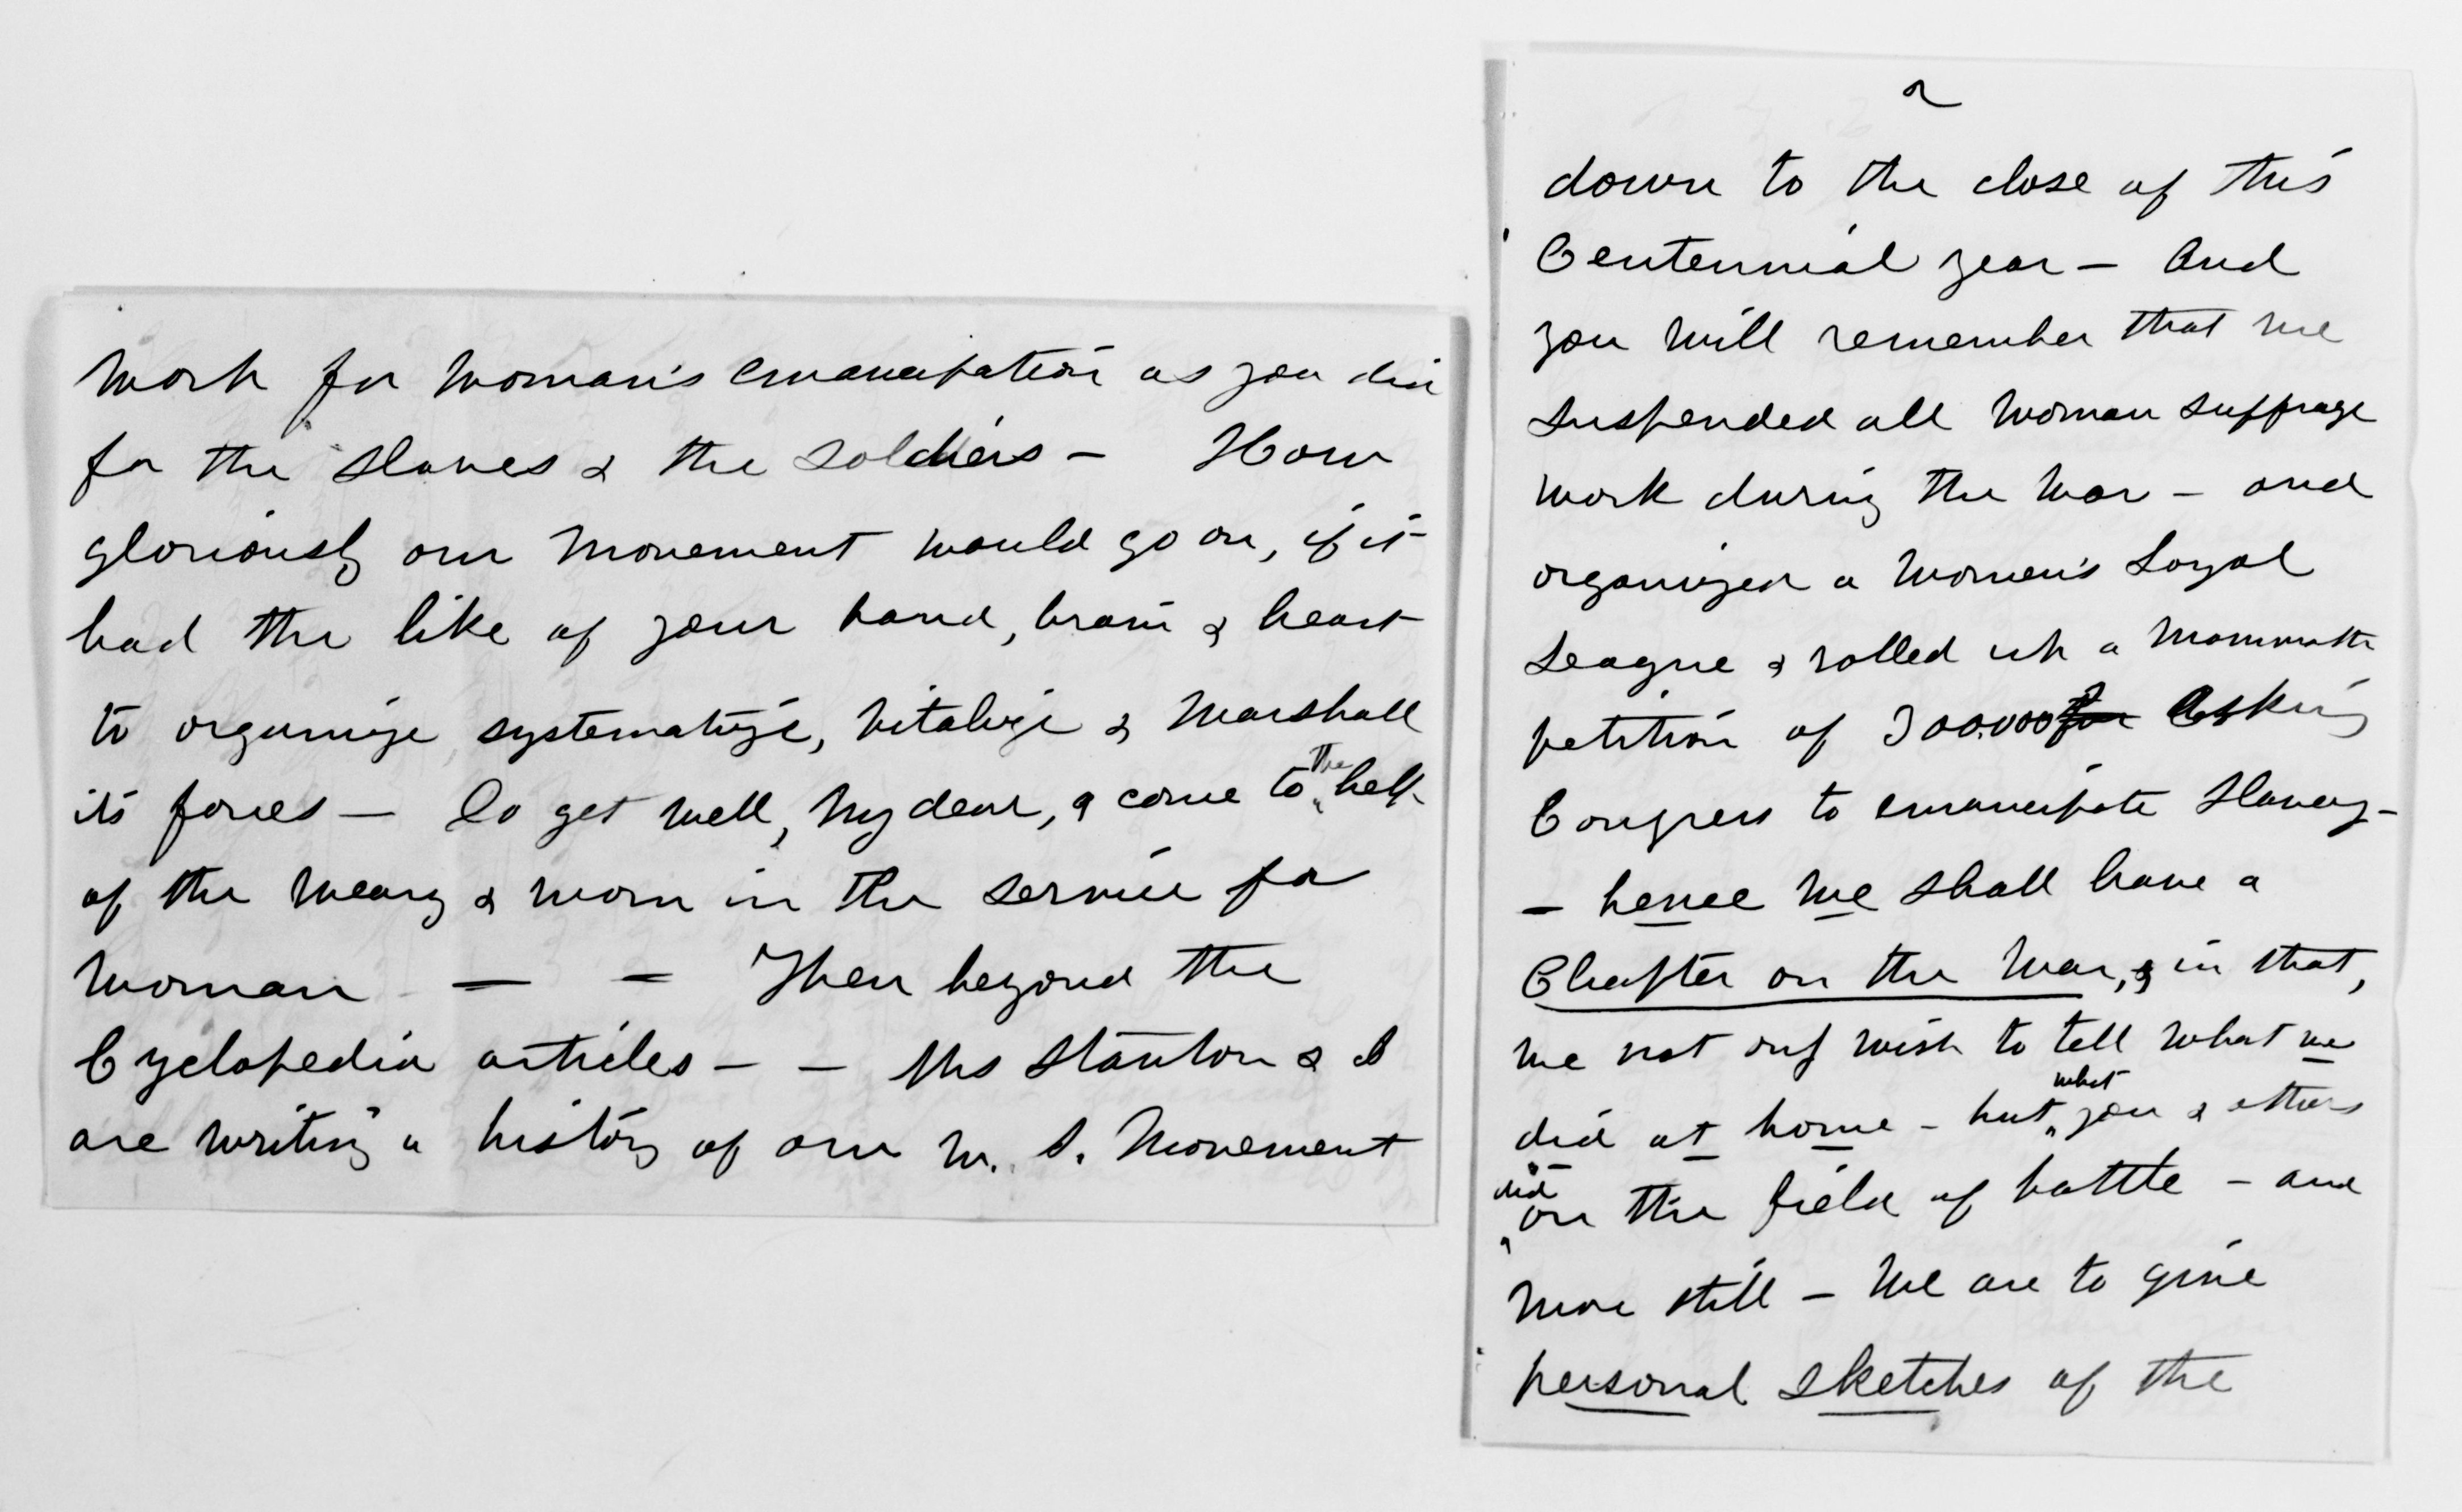 work for woman's emancipation as you did
for the slaves & the soldiers - How
gloriously our movement would go on, if it
had the like of your hand, brain & heart
to organize, systematize, vitalize & marshall
its forces - So get well, my dear, & come to the help
of the weary & worn in the service for
woman - - Then beyond the
Cyclopedia articles - - Mrs Stanton & I
are writing a history of our W. S. Movement
2
down to the close of this
Centennial year - And
you will remember that we
suspended all woman suffrage
work during the war - and
organized a Women's Loyal
League & rolled up a mammoth
petition of 300.000 for Asking
Congress to emancipate slavery -
- hence we shall have a
Chapter on the War, & in that,
we not only wish to tell what we
did at home - but what you & others
did on the field of battle - and
more still - we are to give
personal sketches of the